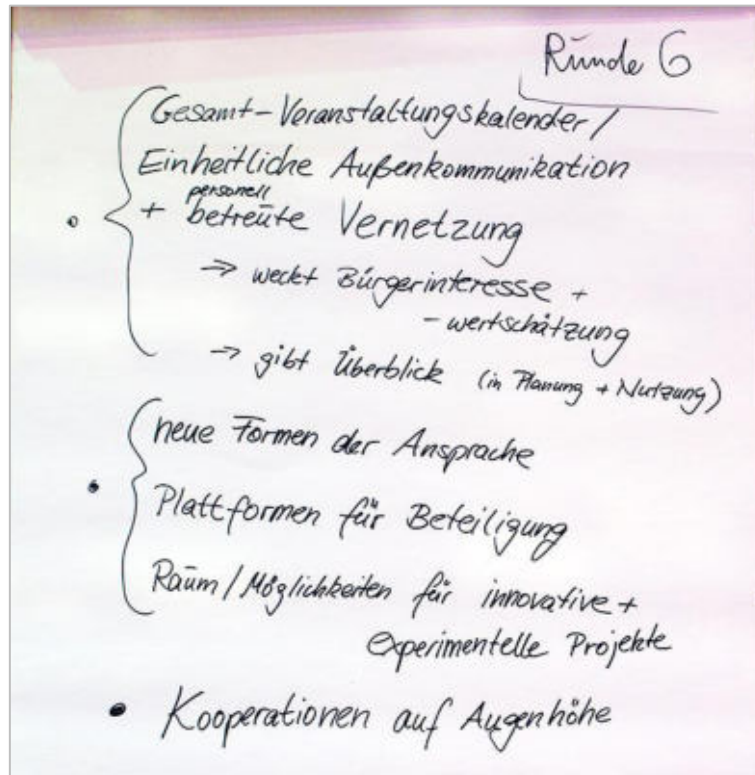 Runde 6
Gesamt-Veranstaltungskalender/
Einheitliche Außenkommunikation
personell
+ betreute Vernetzung
⇒ weckt Bürgerinteresse +
- wertschätzung
→ gibt Überblick (in Planung + Nutzung)
neue Formen der Ansprache
Plattformen für Beteiligung
Raum/Möglichkeiten für innovative +
experimentelle Projekte
• Kooperationen auf Augenhöhe